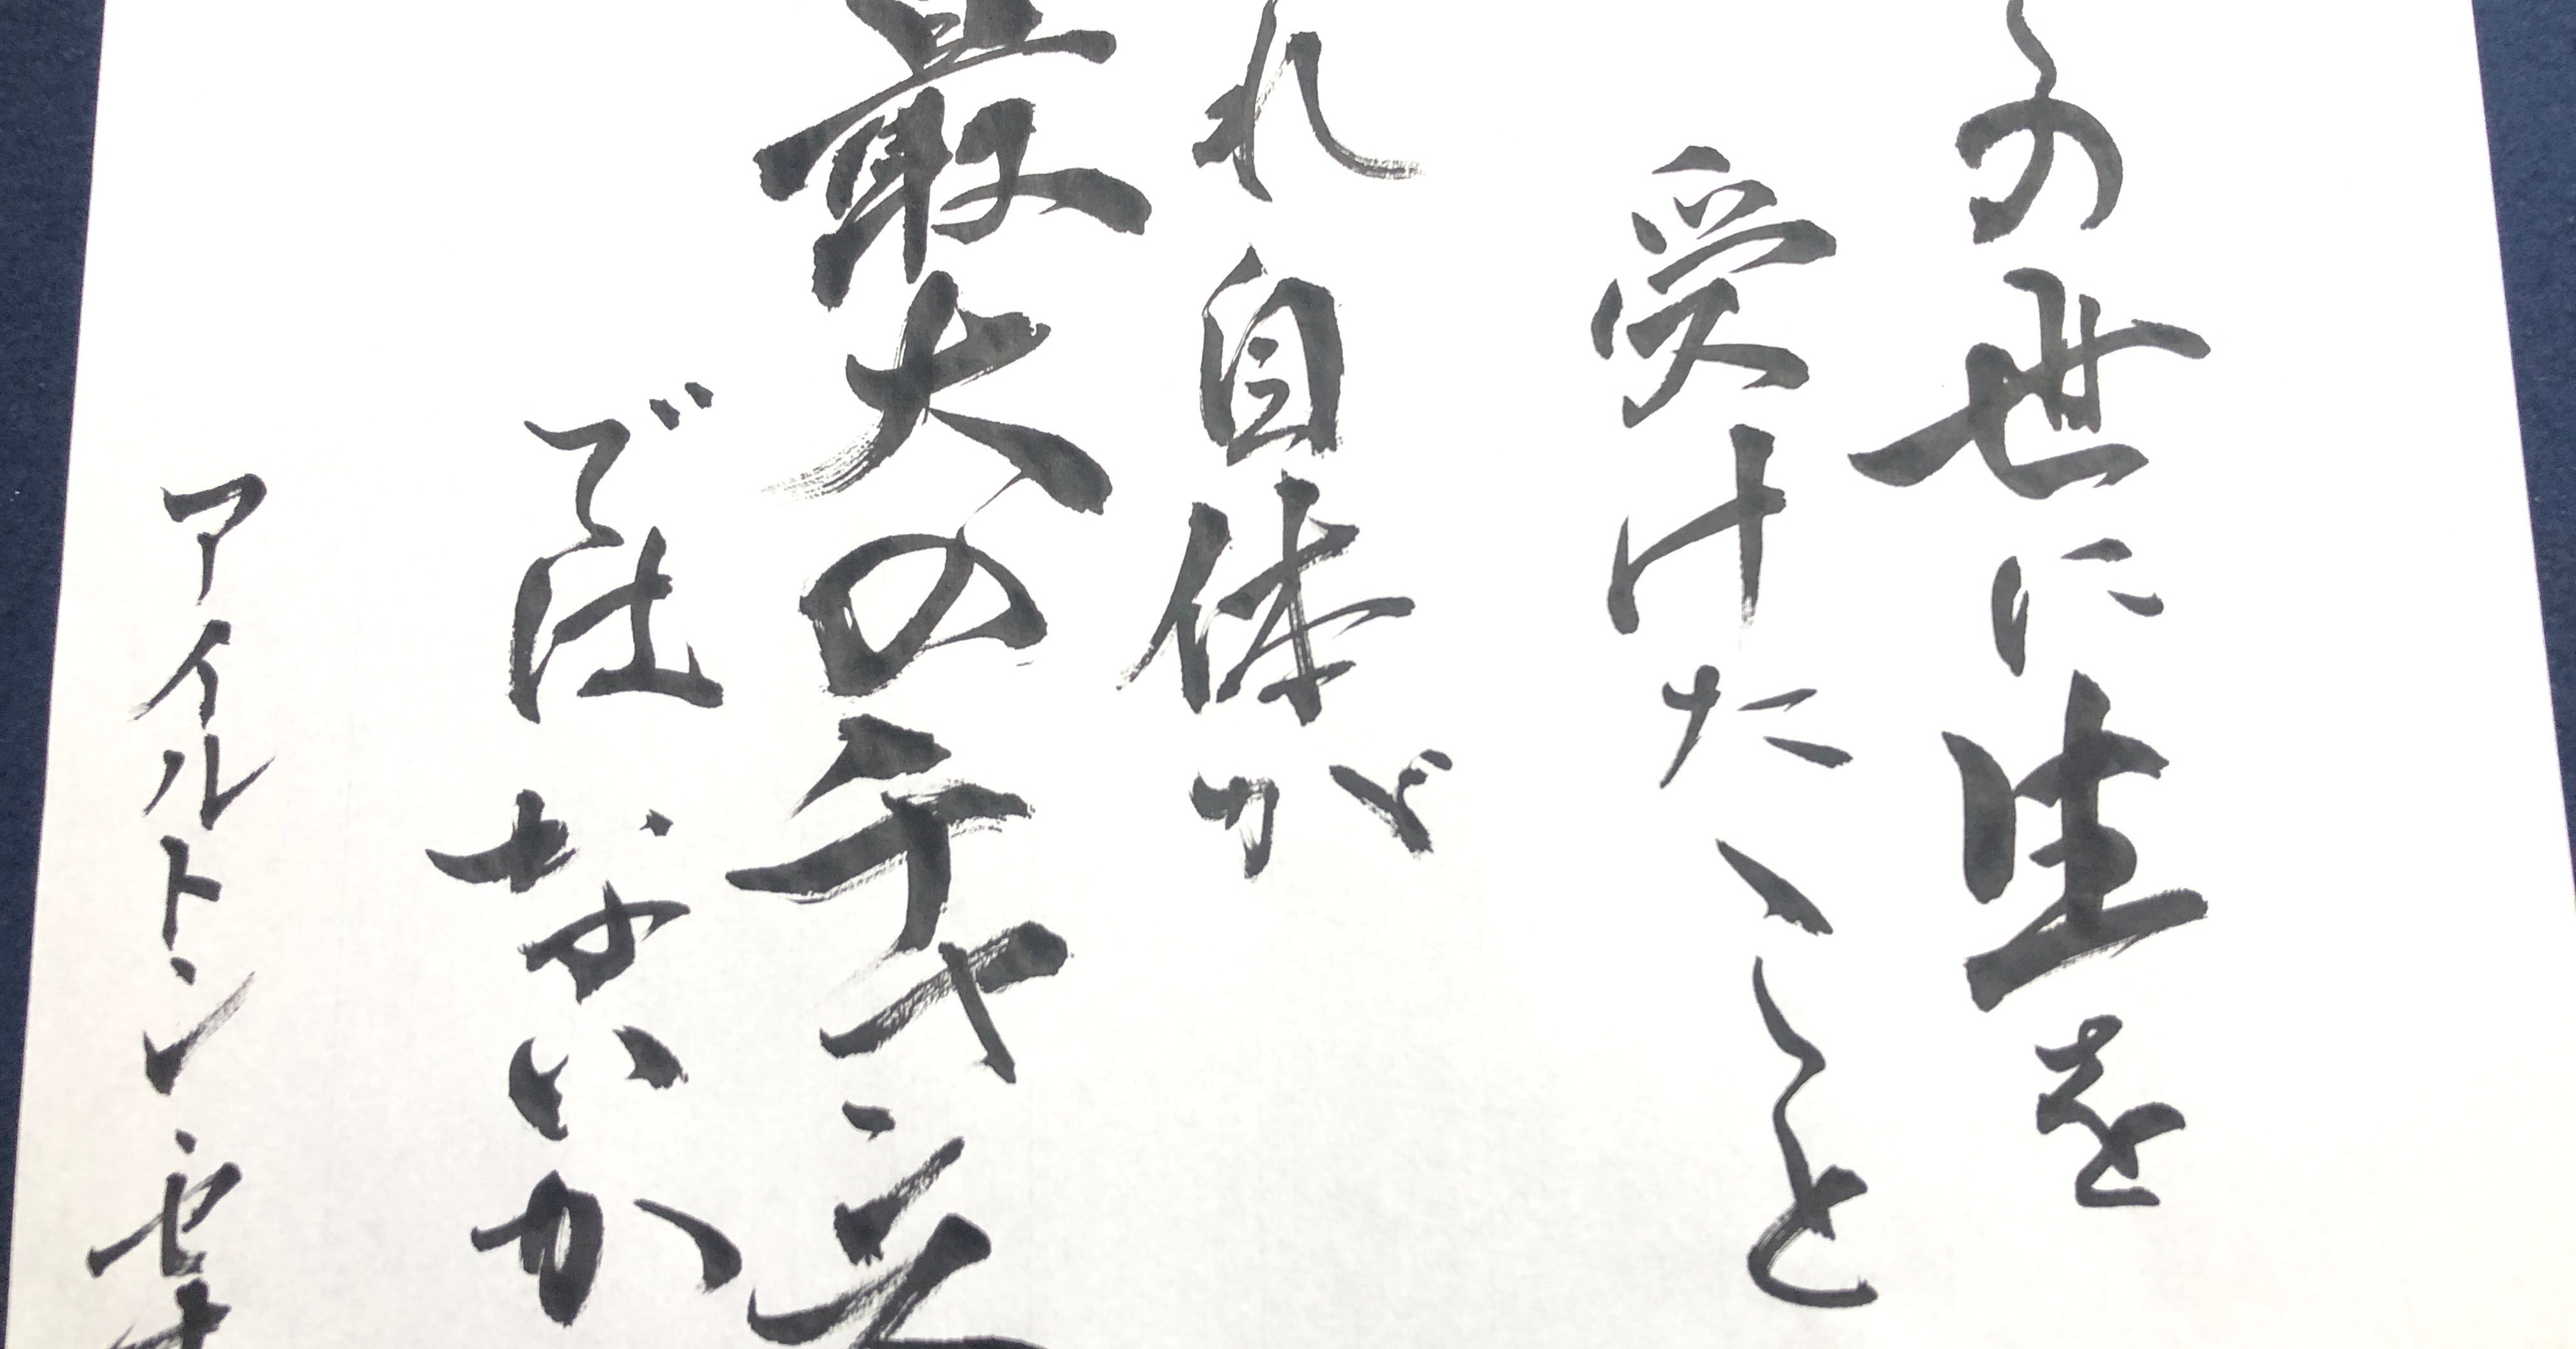 の世に生を
受けたこと
れ自体が
最大のチャンス
ではないか
アイルトン・セナ